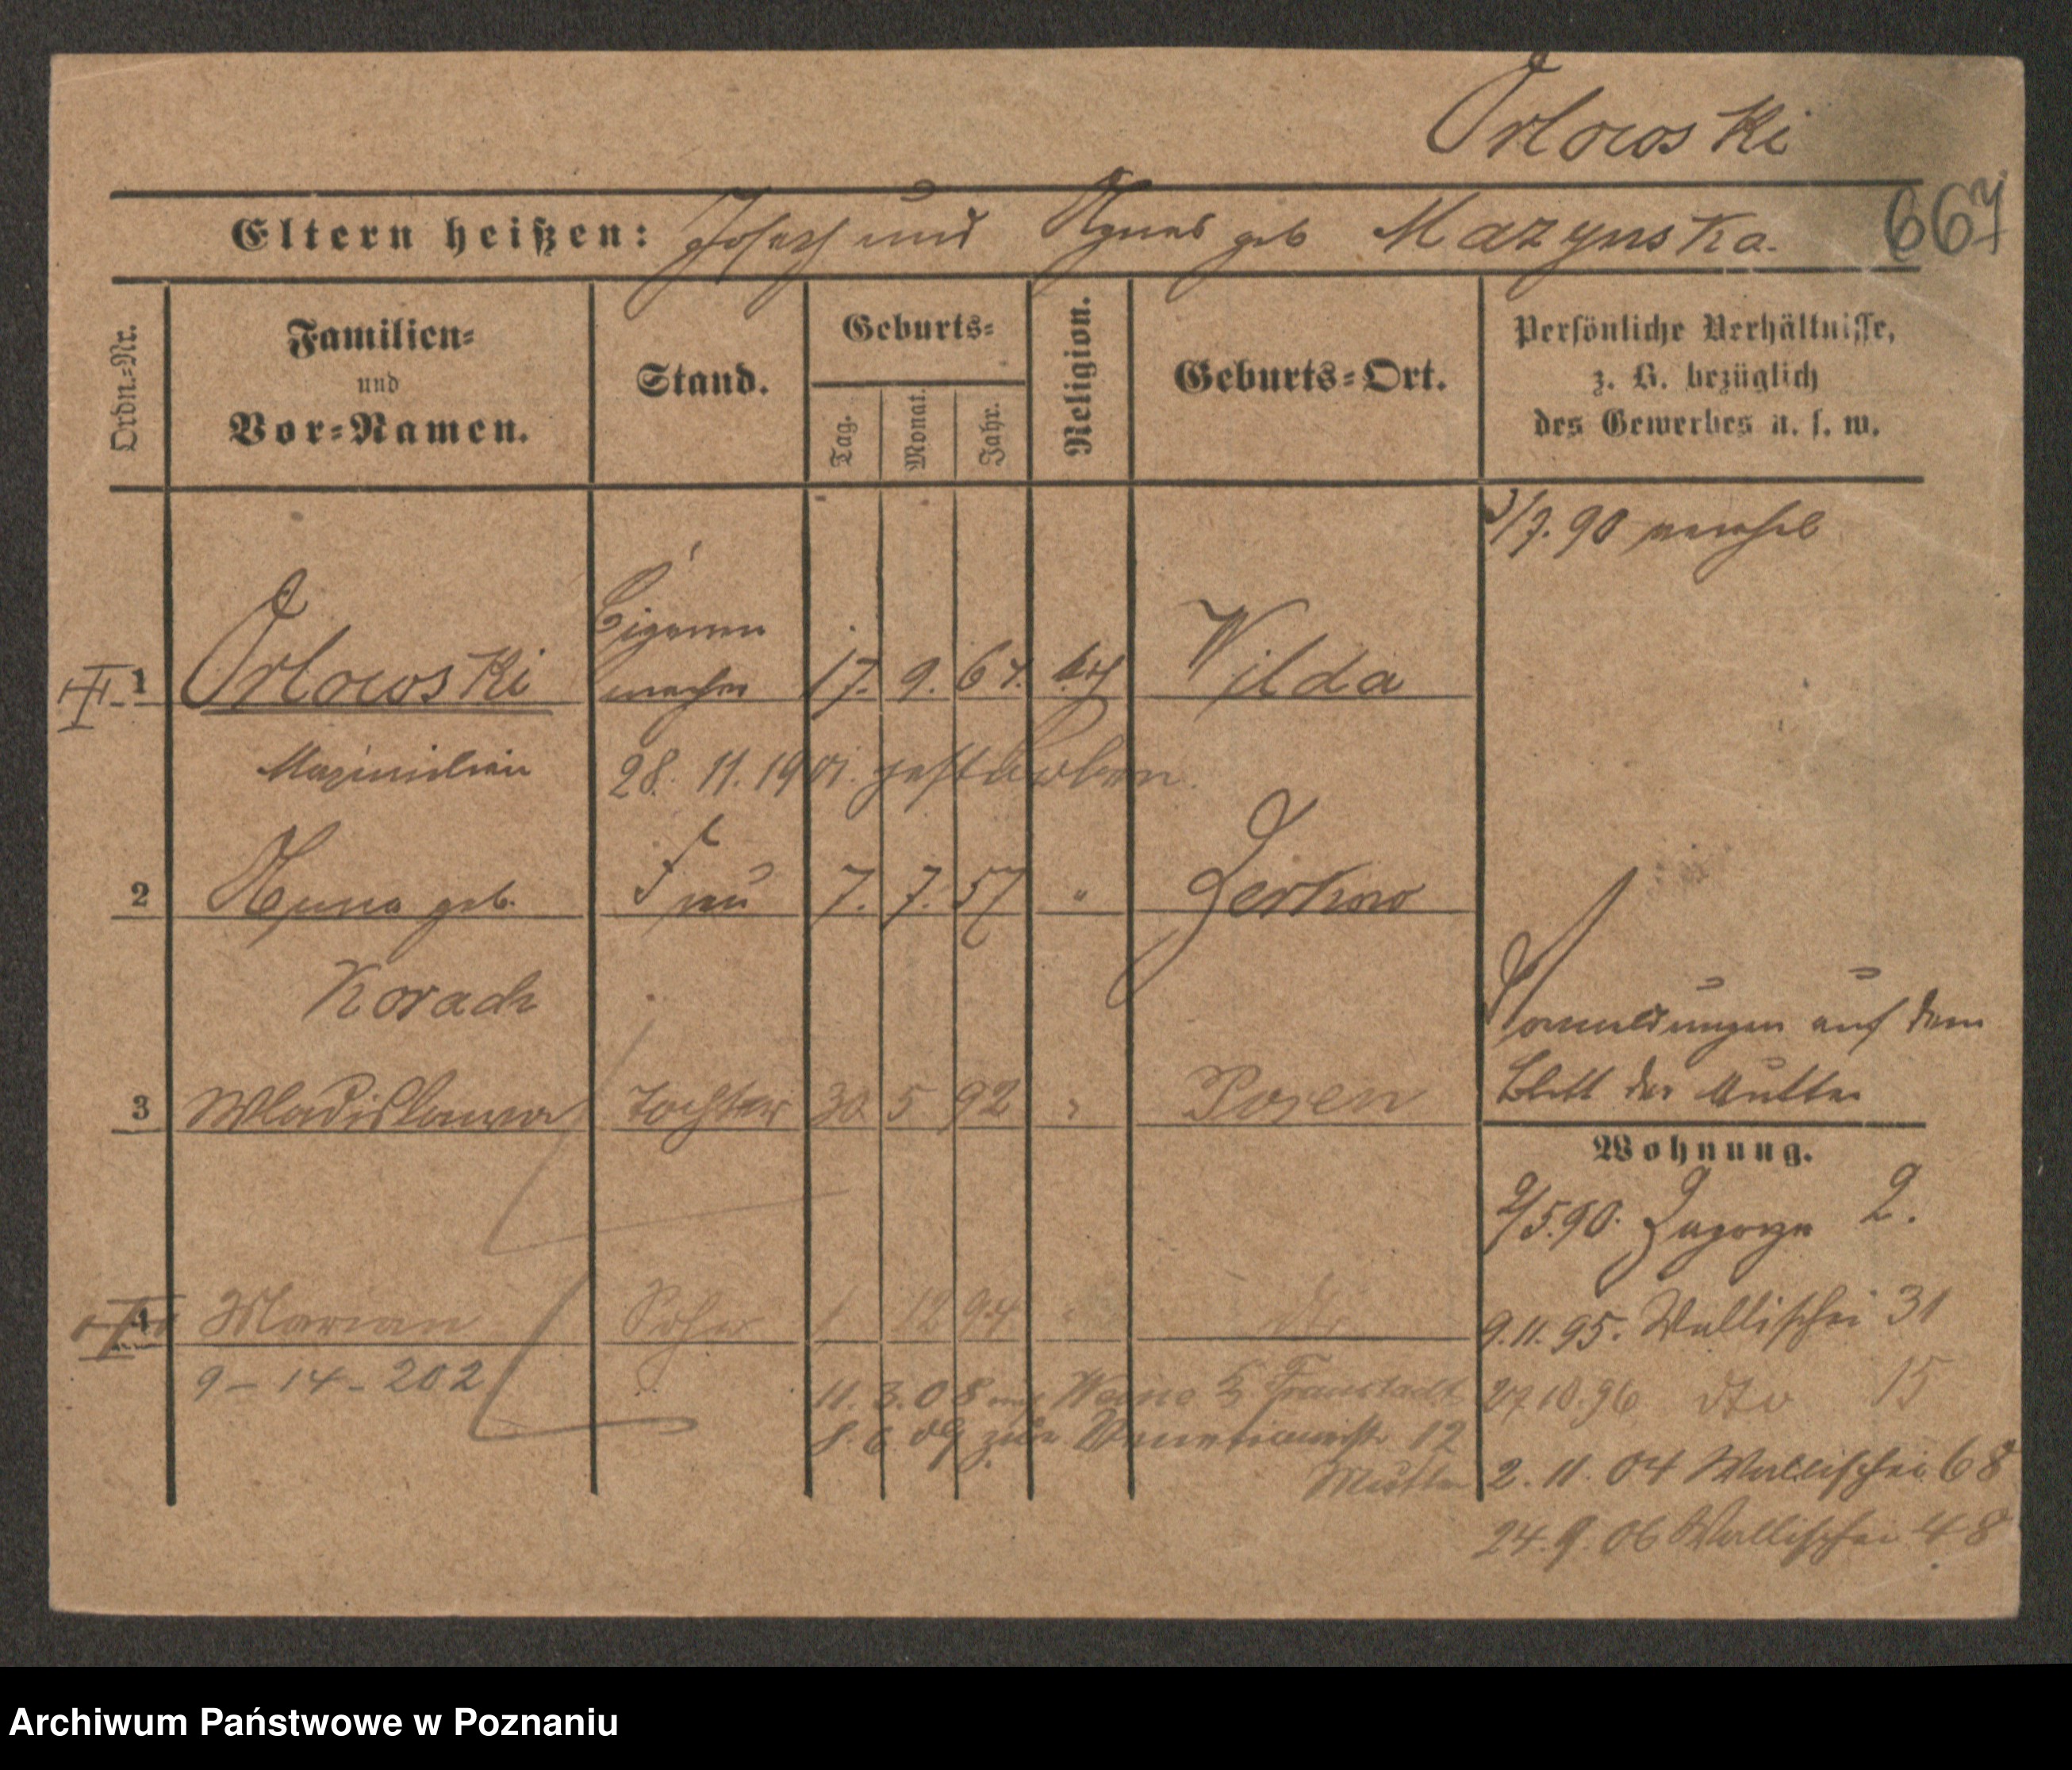 Orlowski
Eltern heißen: Joseph und Agnes geb Mazynska.
667
Ordn.=Nr.
Familien=
und
Vor=Namen.
Stand.
Geburts=
Tag.
Monat.
Jahr.
Religion.
Geburts=Ort.
Persönliche Verhältnisse,
z. B. bezüglich
des Gewerbes u. s. w.
/7. 90
Cigarren
1 Orlowski macher 17. 9. 67. kth Wilda
Maximilian 28. 11. 1901. gestorben.
2 geb. Frau 7. 7. 57 " Zerkow
Korach
auf dem
3 Wladislawa Tochter 30 5 92 " Posen
Blatt der Mutter
Wohnung.
2/5.90. Zagorze 2.
4 Marian Sohn 1. 12 94 " dto
9.11.95. Wallischei 31
9 - 14 - 202
11. 3. 08 Fraustadt
27.10.96 dto 15
8. 6. 09 zur 12
Mutter
2. 11. 04 Wallischei 68
24. 9. 06 Wallischei 48
Archiwum Państwowe w Poznaniu